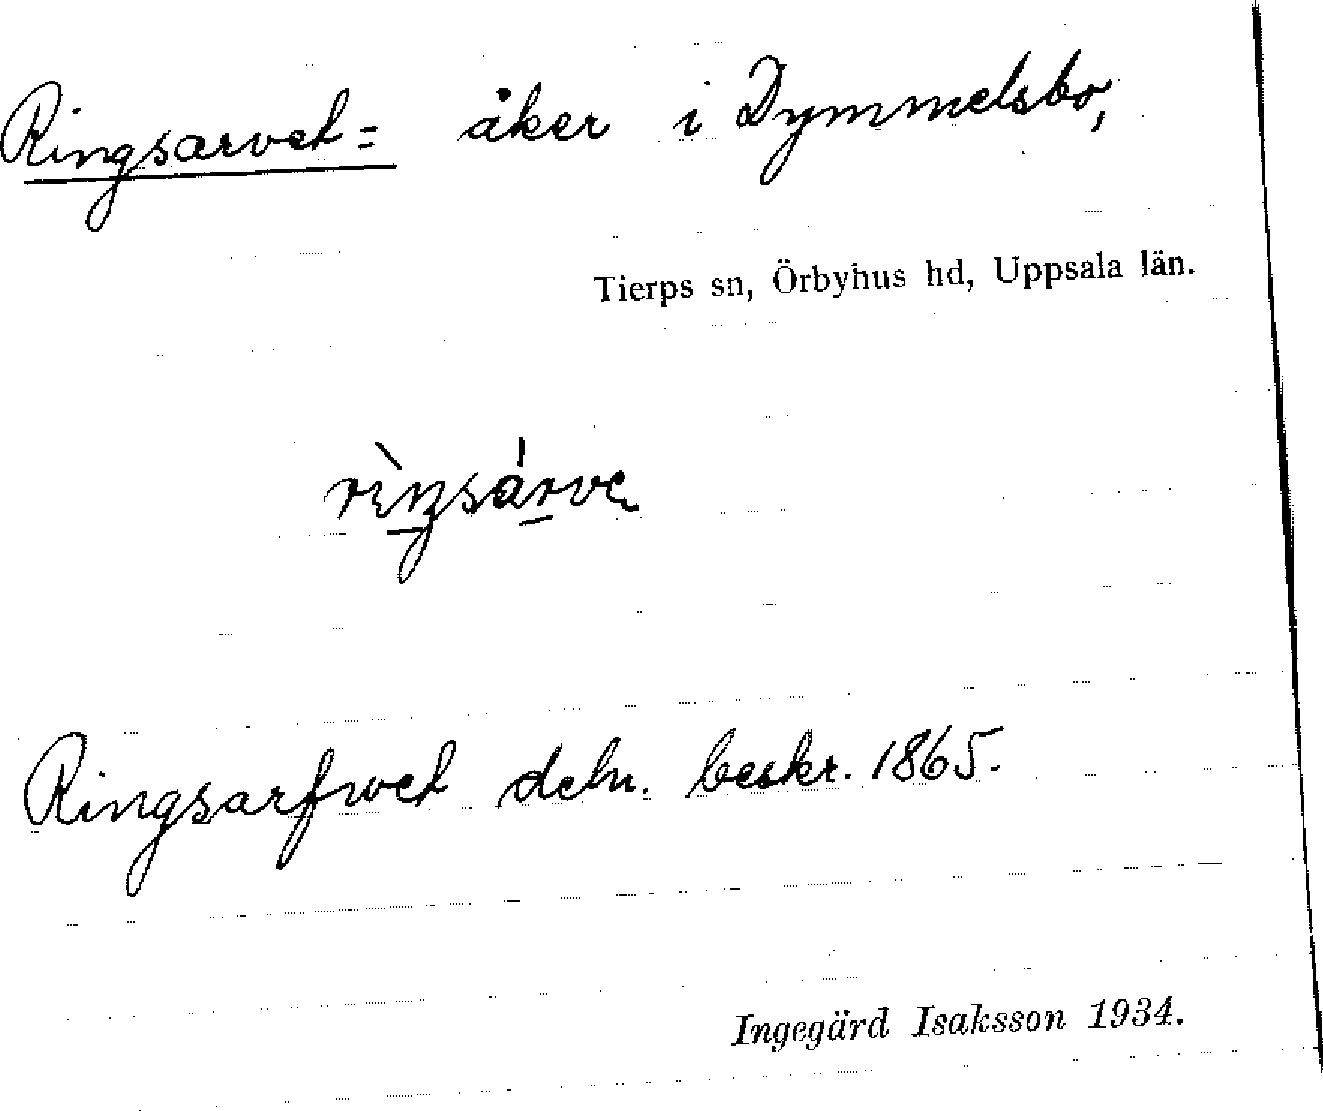 Ringsarvet = åker i Dymmelsbo,
Tierps sn, Örbyhus hd, Uppsala län.
Ringsarfwet deln. beskr. 1865.
Ingegärd Isaksson 1934.